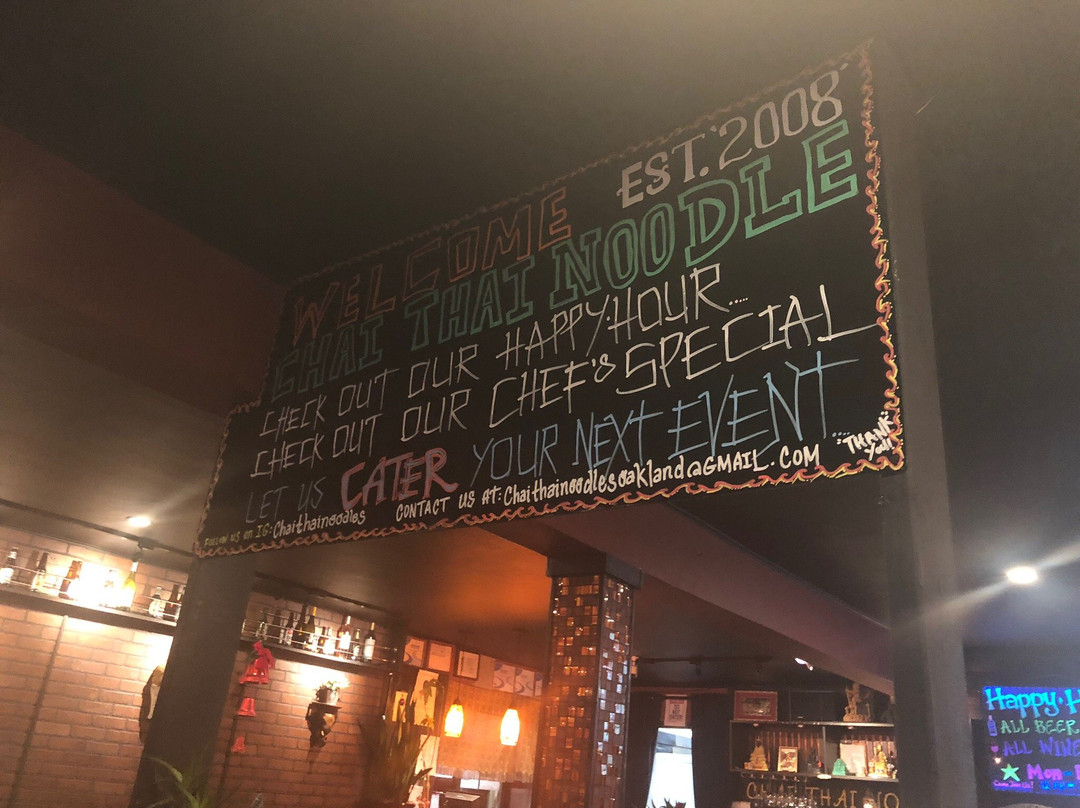 EST. 2008
WELCOME
CHAI THAI NOODLE
CHECK OUT OUR HAPPY·HOUR.....
CHECK OUT OUR CHEF'S SPECIAL
LET US CATER YOUR NEXT EVENT....
FOLLOW US ON IG: Chaithainoodles
CONTACT US AT: Chaithainoodlesoakland@GMAIL.COM
THANK
You!
Happy·H
ALL BEER
ALL WINE
Mon-
CHAI THAI NO